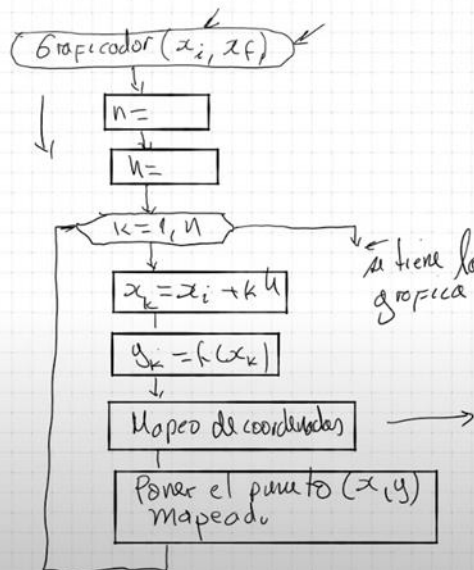 Graficador (x_i, x_f)
n=
h=
k=1, n
se tiene la
grafica
x_k = x_i + k h
y_k = f(x_k)
Mapeo de coordenadas
Poner el punto (x, y)
mapeado